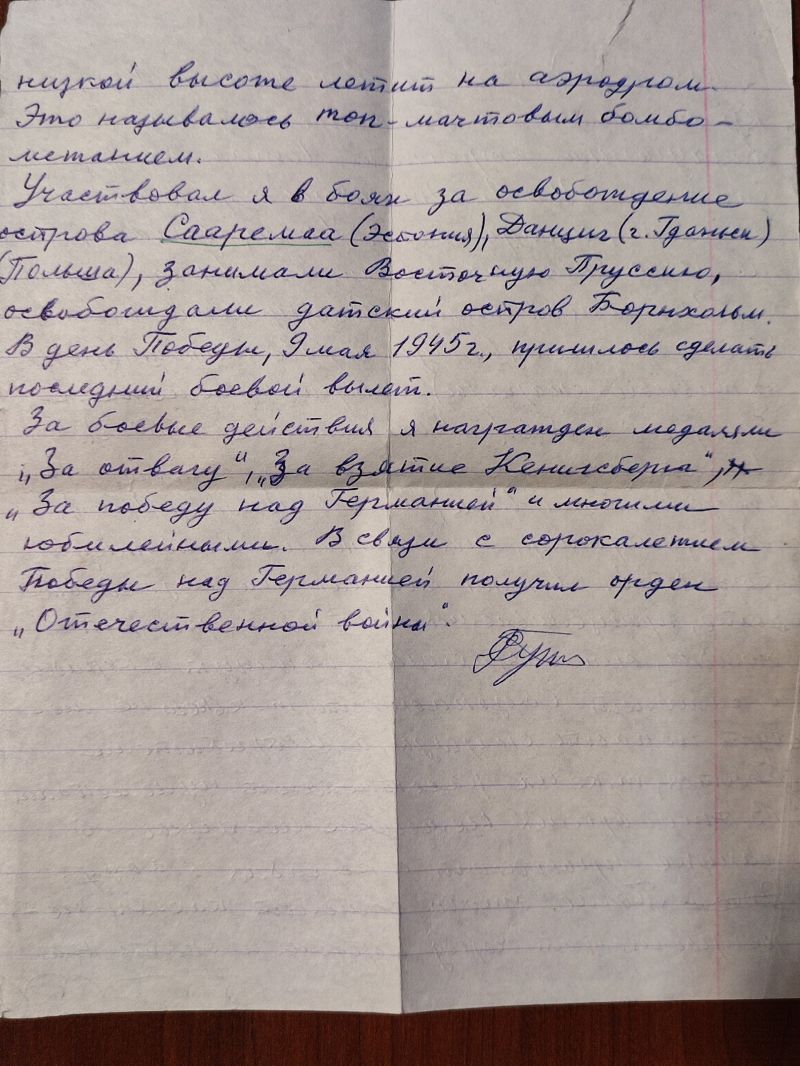 низкой высоте летит на аэродром.
Это называлось топ-мачтовым бомбо-
метанием.
Участвовал я в боях за освобождение
острова Сааремаа (Эстония), Данциг (г. Гданьск)
(Польша), занимали Восточную Пруссию,
освобождали датский остров Борнхольм.
В день Победы, 9 мая 1945 г., пришлось сделать
последний боевой вылет.
За боевые действия я награжден медалями
„За отвагу", „За взятие Кенигсберга",
„За победу над Германией" и многими
юбилейными. В связи с сорокалетием
Победы над Германией получил орден
„Отечественной войны".